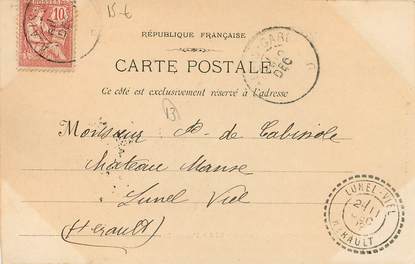 15-€
RÉPUBLIQUE FRANÇAISE
10
CARTE POSTALE
GARE
DEC
Ce côté est exclusivement réservé à l'adresse
B
Monsieur de Cabissole
Château
Lunel Viel
(Hérault)
LUNEL-VIEL
HERAULT